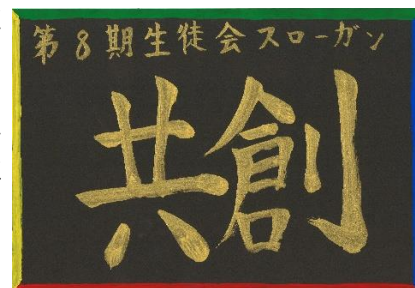 第8期生徒会スローガン
共創